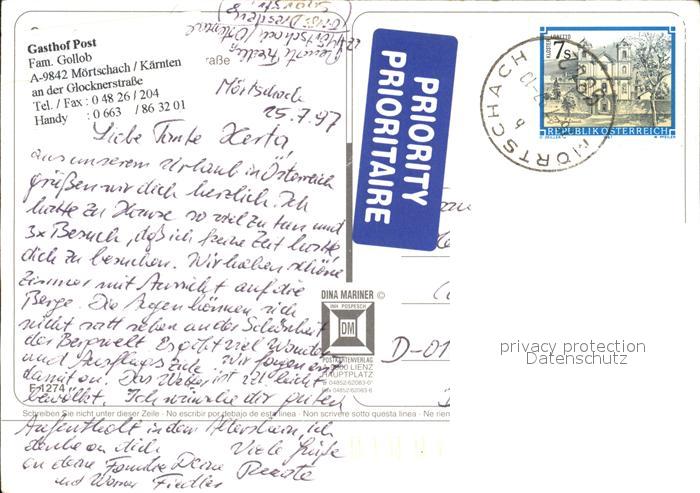 Gasthof Post
Fam. Gollob
A-9842 Mörtschach / Kärnten
an der Glocknerstraße
Tel. / Fax : 0 48 26 / 204
Handy : 0 663 / 86 32 01
raße
Mörtschach
25.7.97
Liebe Tante Herta,
aus unserem Urlaub in Österreich
grüßen wir dich herzlich. Ich
hatte zu Hause so viel zu tun und
3x Besuch, daß ich keine Zeit hatte,
dich zu besuchen. Wir haben schöne
Zimmer mit Aussicht auf die
Berge. Die Augen können sich
nicht satt sehen an der Schönheit
der Bergwelt. Es gibt viel Wander
und Ausflugsziele. Wir fangen erst
damit an. Das Wetter ist zur leicht
bewölkt. Ich wünsche dir guten
E1274
Schreiben Sie nicht unter dieser Zeile - No escribir por debajo de esta linea - Non scrivere sotto questa linea - Ne rien
Aufenthalt in dem Altersheim, ich
denke an dich Viele Grüße
an deine Familie Deine Renate
und Werner Fiedler
PRIORITY
PRIORITAIRE
DINA MARINER ©
INH POSPESCH
DM
POSTKARTENVERLAG
9900 LIENZ
HAUPTPLATZ
D-01
KLOSTER LORETTO
7 S
REPUBLIK ÖSTERREICH
MÖRTSCHACH
b
privacy protection
Datenschutz